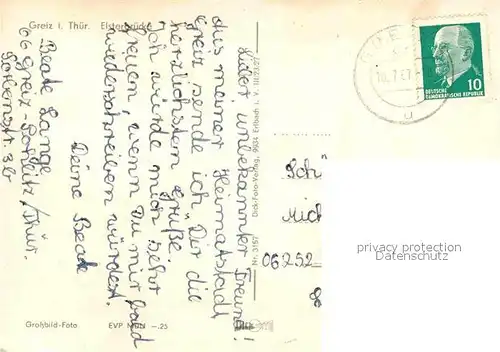 Greiz i. Thür. Elsterbrücke
Lieber, unbekannter Freund!
Aus meiner Heimatstadt
Greiz sende ich Dir die
herzlichsten Grüße.
Ich würde mich sehr
freuen, wenn Du mir bald
wiederschreiben würdest.
Deine Beate
Beate Lange
66 Greiz-Pohlitz/Thür.
31
Großbild-Foto EVP MDN -.25
Nr. 3157 Dick-Foto-Verlag, 9934 Erlbach i. V. III
10.7.67
10
DEUTSCHE
DEMOKRATISCHE REPUBLIK
"Sch
Mich
privacy protection
6252